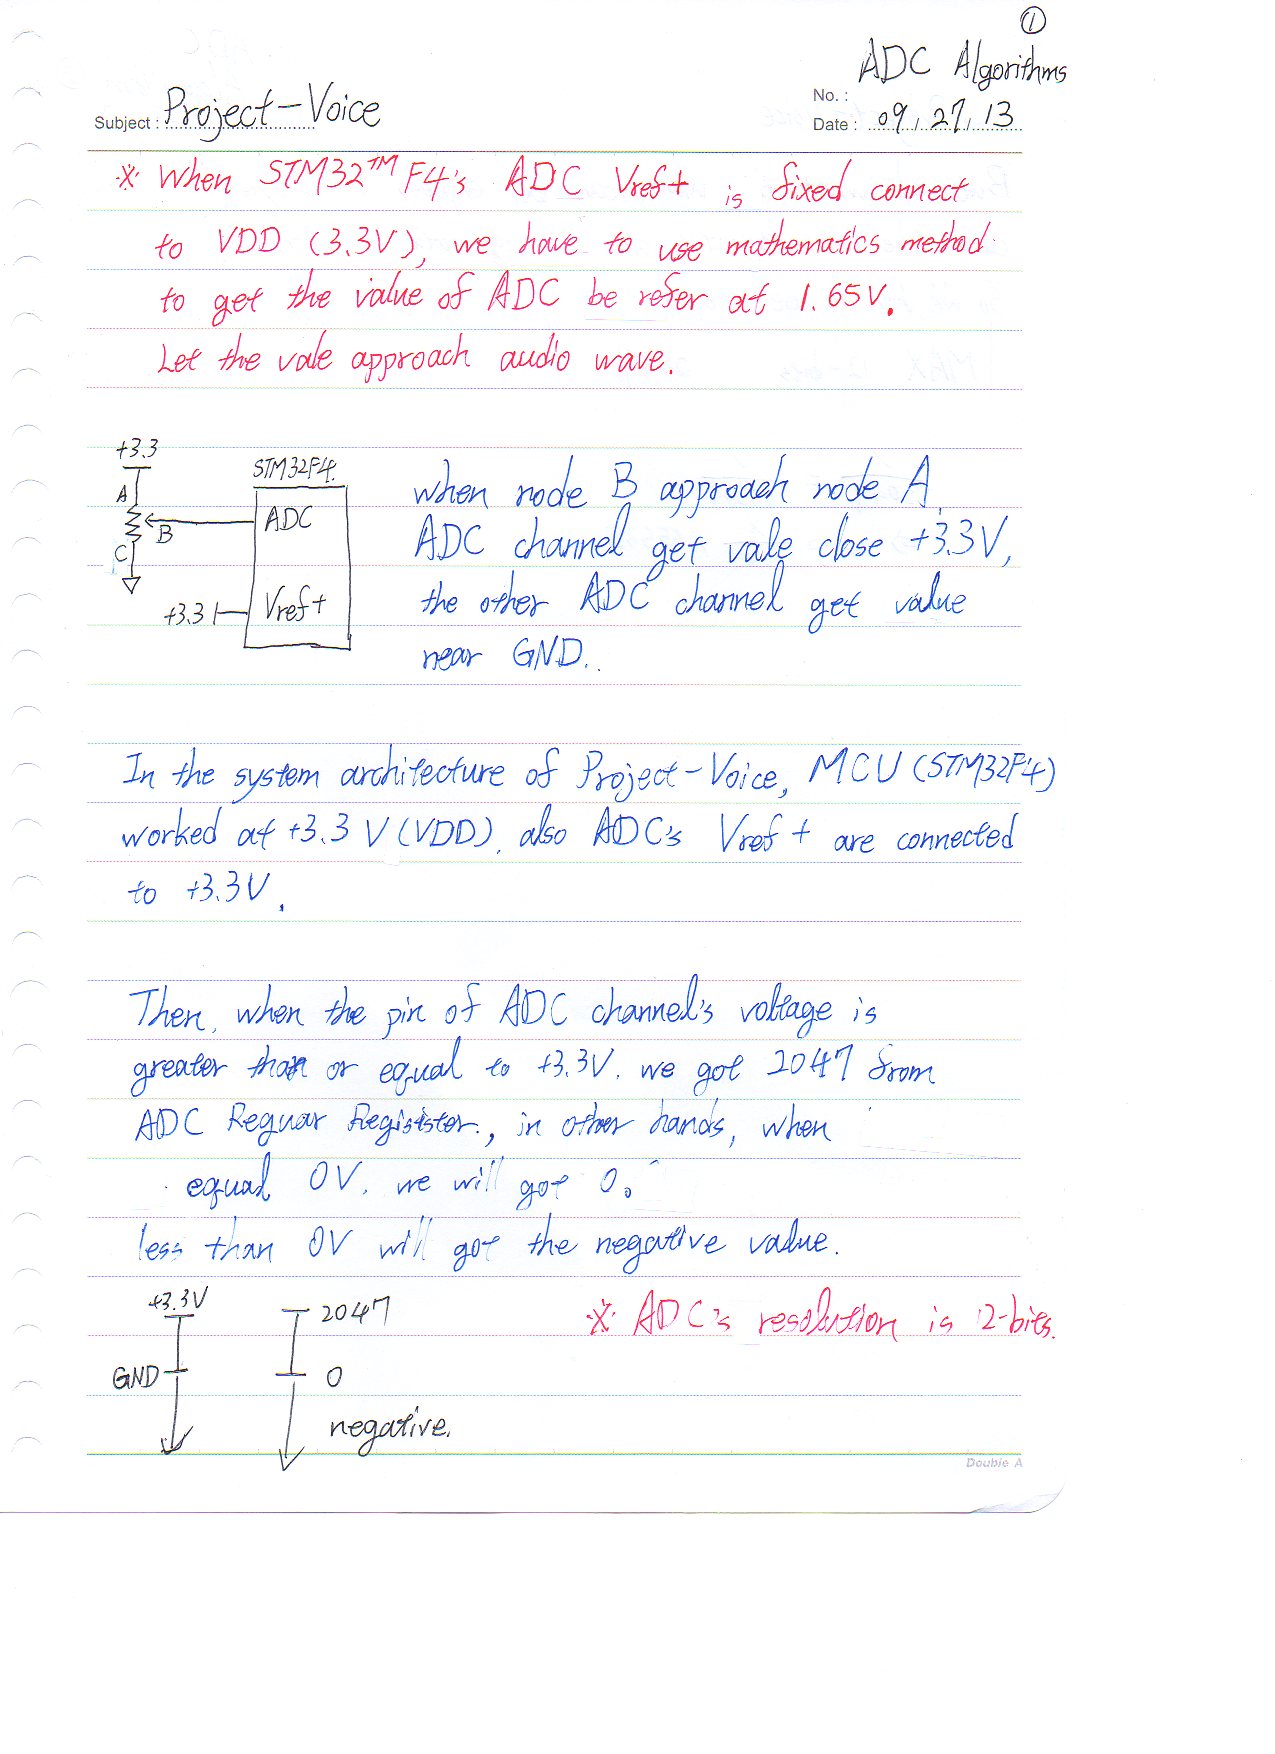 ①
ADC Algorithms
No. :
Subject : Project-Voice
Date : 09, 27, 13
※ When STM32™ F4's ADC Vref+ is fixed connect
to VDD (3.3V), we have to use mathematics method
to get the value of ADC be refer at 1.65V.
Let the vale approach audio wave.
+3.3
A
B
C
STM32F4.
ADC
+3.3
Vref+
when node B approach node A,
ADC channel get vale close +3.3V,
the other ADC channel get value
near GND.
In the system architecture of Project-Voice, MCU (STM32F4)
worked at +3.3 V (VDD), also ADC's Vref + are connected
to +3.3V.
Then, when the pin of ADC channel's voltage is
greater than or equal to +3.3V. we got 2047 from
ADC Reguar Regisister., in other hands, when
equal 0V. we will got 0.
less than 0V will got the negative value.
+3.3V
GND
2047
0
negative.
※ ADC's resolution is 12-bits.
Double A